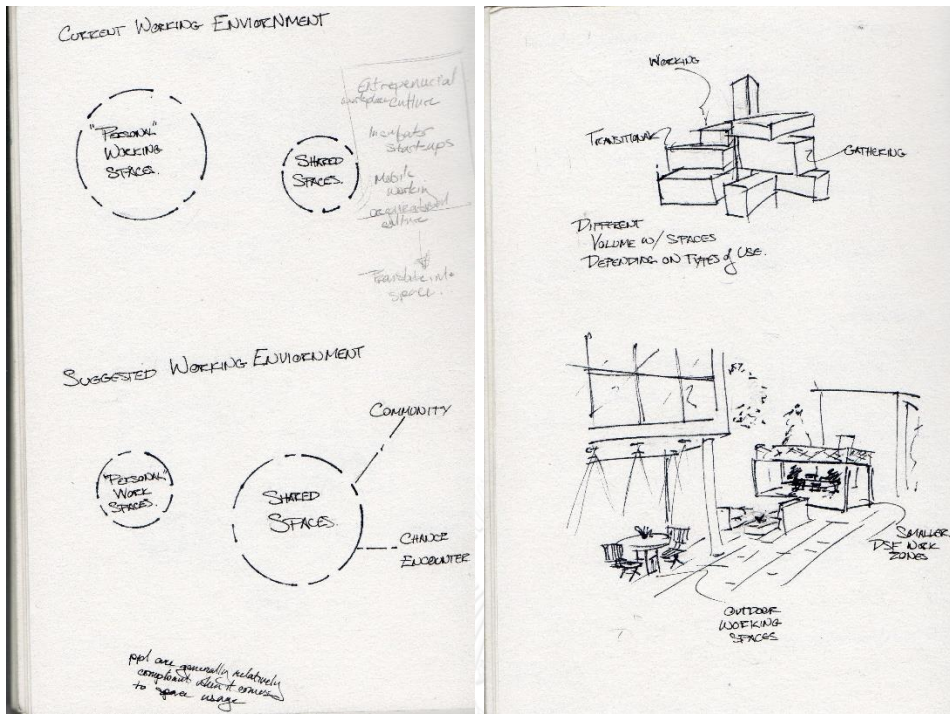 CURRENT WORKING ENVIORNMENT
"PERSONAL"
WORKING
SPACES.
SHARED
SPACES.
Entrepenucial
culture
Incubator
Startups
Mobile
workin
culture
Translate into
space.
SUGGESTED WORKING ENVIORNMENT
COMMUNITY
"PERSONAL"
WORK
SPACES.
SHARED
SPACES.
CHANCE
ENCOUNTER
ppl are generally relatively
complaint when it comes
to space usage
WORKING
TRANSITIONAL
GATHERING
DIFFERENT
VOLUME W/ SPACES
DEPENDING ON TYPES of USE.
SMALLER
WORK
ZONES
OUTDOOR
WORKING
SPACES